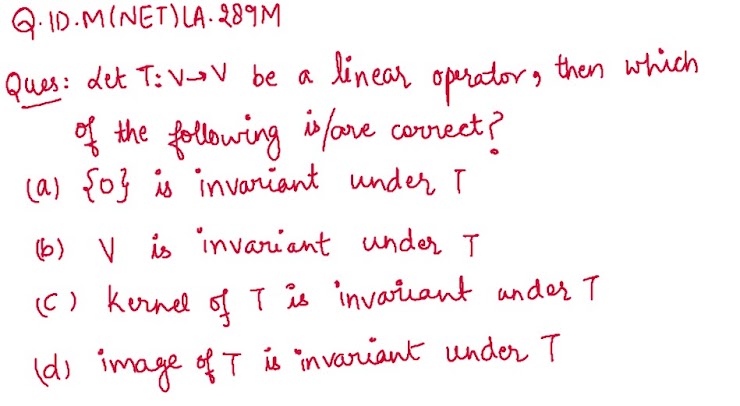 Q.ID.M(NET)LA.289M
Ques: Let T: V→V be a linear operator, then which
of the following is/are correct?
(a) {0} is invariant under T
(b) V is invariant under T
(c) kernel of T is invariant under T
(d) image of T is invariant under T